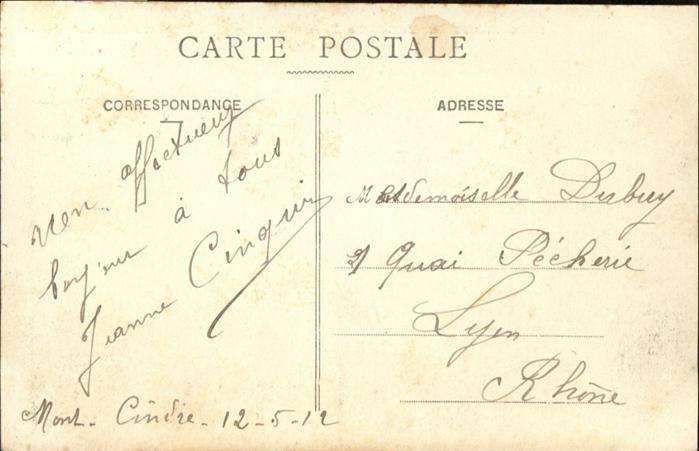 CARTE POSTALE
CORRESPONDANCE
ADRESSE
affectueux
bonjour à tous
Jeanne Cinquin
Mont-Cindre-12-5-12
Mademoiselle Dubuy
Quai Pécherie
Lyon
Rhône